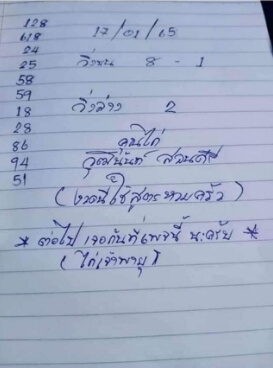 128
618
24
25
58
59
18
28
86
94
51
17/01/65
วิ่งบน 8 - 1
วิ่งล่าง 2
คุนไก่
วุฒินันท์ สวนศรี
(งวดนี้ใช้สูตรหามครัว)
* ต่อไป เจอกันที่เพจนี้ นะครับ *
(ไก่เจ้าพายุ)